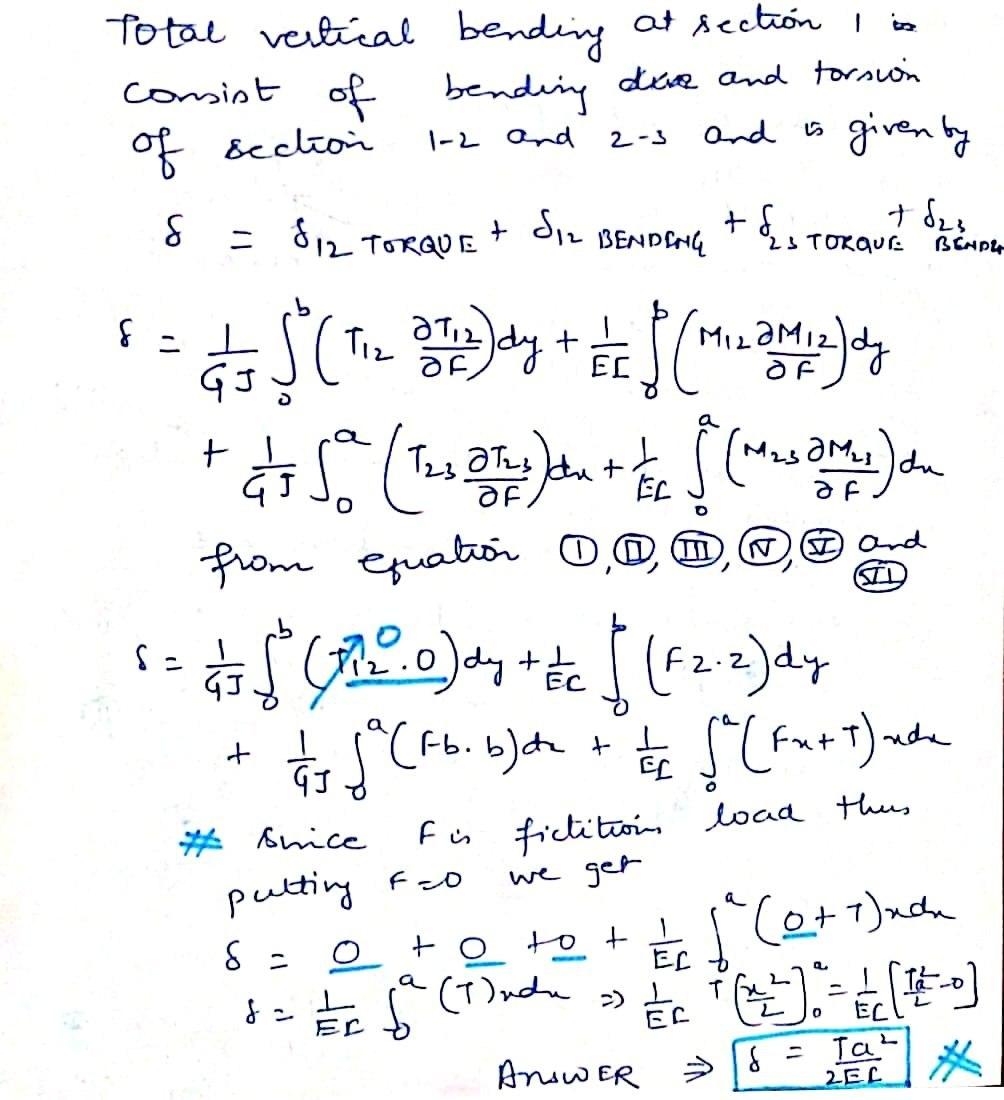 Total vertical bending at section 1 is
consist of bending and torsion
of section 1-2 and 2-3 and is given by
δ = δ12 TORQUE + δ12 BENDING + δ23 TORQUE + δ23 BENDG
δ = 1/GJ ∫₀ᵇ (T12 ∂T12/∂F) dy + 1/EI ∫₀ᵇ (M12 ∂M12/∂F) dy
+ 1/GJ ∫₀ᵃ (T23 ∂T23/∂F) dx + 1/EI ∫₀ᵃ (M23 ∂M23/∂F) dx
from equation Ⓘ, Ⓘ Ⓘ, III, IV, V and
VI
δ = 1/GJ ∫₀ᵇ (T12 . 0) 0 dy + 1/EI ∫₀ᵇ (Fz.z) dy
+ 1/GJ ∫₀ᵃ (Fb.b) dx + 1/EI ∫₀ᵃ (Fx + T) x dx
# Since F is fictitious load thus
putting F = 0 we get
δ = 0 + 0 + 0 + 1/EI ∫₀ᵃ (0 + T) x dx
δ = 1/EI ∫₀ᵃ (T) x dx ⇒ 1/EI T [x²/2]₀ᵃ = 1/EI [Ta²/2 - 0]
ANSWER ⇒ δ = Ta²/2EI #